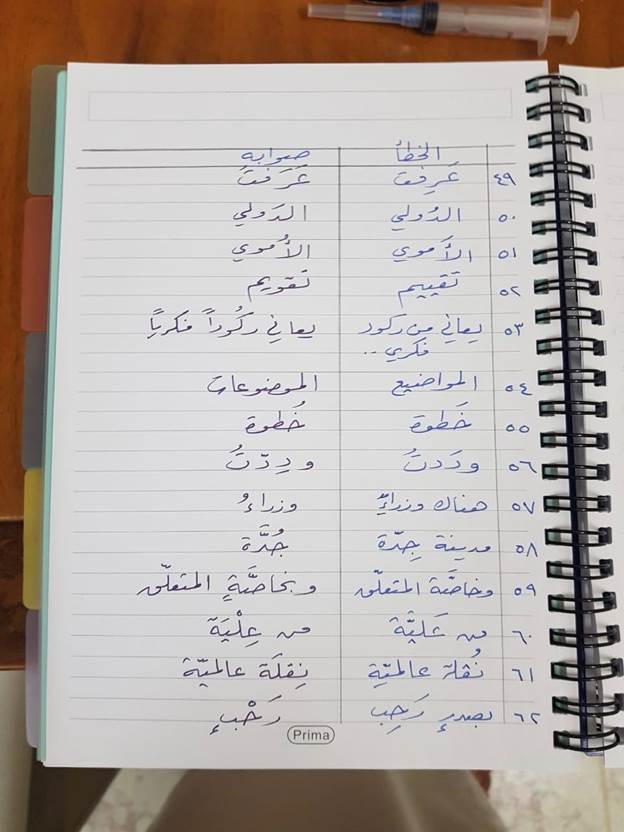 الخطأ صوابه
٤٩ عَرِفت عَرَفت
٥٠ الدُولي الدَولي
٥١ الأَموي الأُموي
٥٢ تقييم تقويم
٥٣ يعاني من ركود يعاني ركُوداً فكرياً
فكري ..
٥٤ المواضيع الموضوعات
٥٥ خَطوة خُطوة
٥٦ ودَدتُ ودِدّتُ
٥٧ هناك وزراءٌ وزراءُ
٥٨ مدينة جِدّة جُدَّة
٥٩ وخاصَّة المتعلّق وبخاصَّةٍ المتعلّق
٦٠ من عَليَّة من عِلْيَة
٦١ نُقلة عالميّة نِقلَة عالميّة
٦٢ بصدرٍ رَحِب رَحْبٍ
Prima